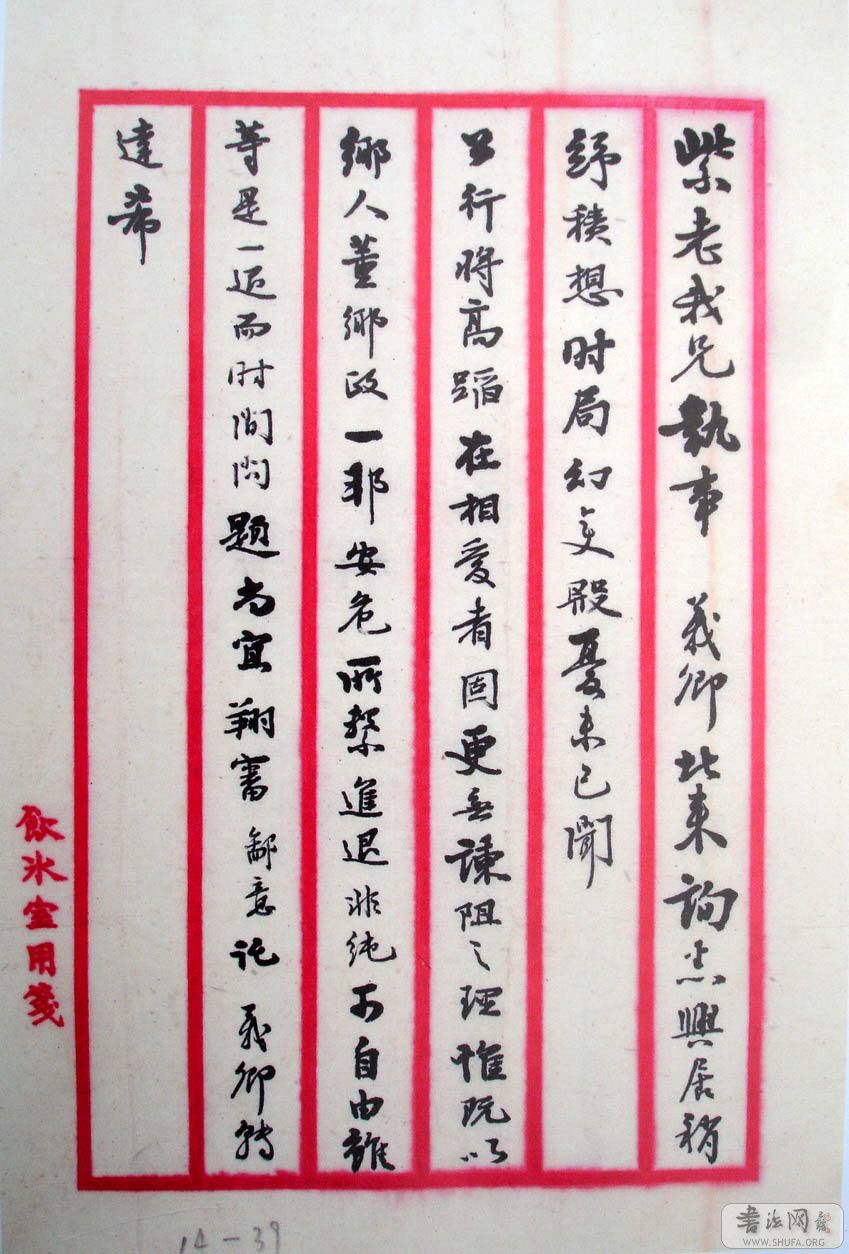 紫老我兄執事 義卿北来詢悉興居稍
紓積想时局幻变殷憂未已聞
公行将高蹈在相爱者固更無諫阻之理惟既以
鄉人董鄉政一邦安危所繋進退非純可自由雖
等是一迈而时間問題尚宜翔審鄙意託 義卿轉
達希
飲冰室用箋
14-39
书法网
WWW.SHUFA.ORG